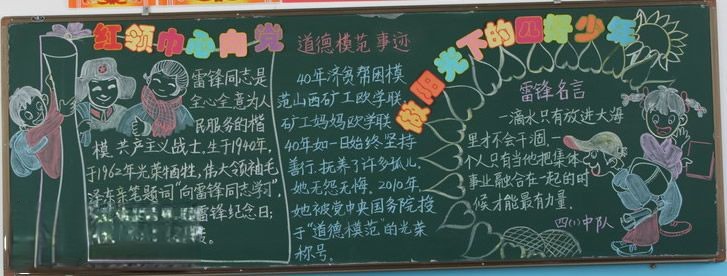 红领巾心向党
雷锋同志是
全心全意为人
民服务的楷
模、共产主义战士,生于1940年,
于1962年光荣牺牲,伟大领袖毛
泽东亲笔题词“向雷锋同志学习”,
雷锋纪念日;
道德模范事迹
40年济贫帮困模
范山西矿工欧学联,
矿工妈妈欧学联
40年如一日始终坚持
善行,抚养了许多孤儿,
她无怨无悔。2010年,
她被党中央国务院授
于“道德模范”的光荣
称号。
做阳光下的四好少年
雷锋名言
一滴水只有放进大海
里才不会干涸,一
个人只有当他把集体
事业融合在一起的时
候才能最有力量.
四(1)中队